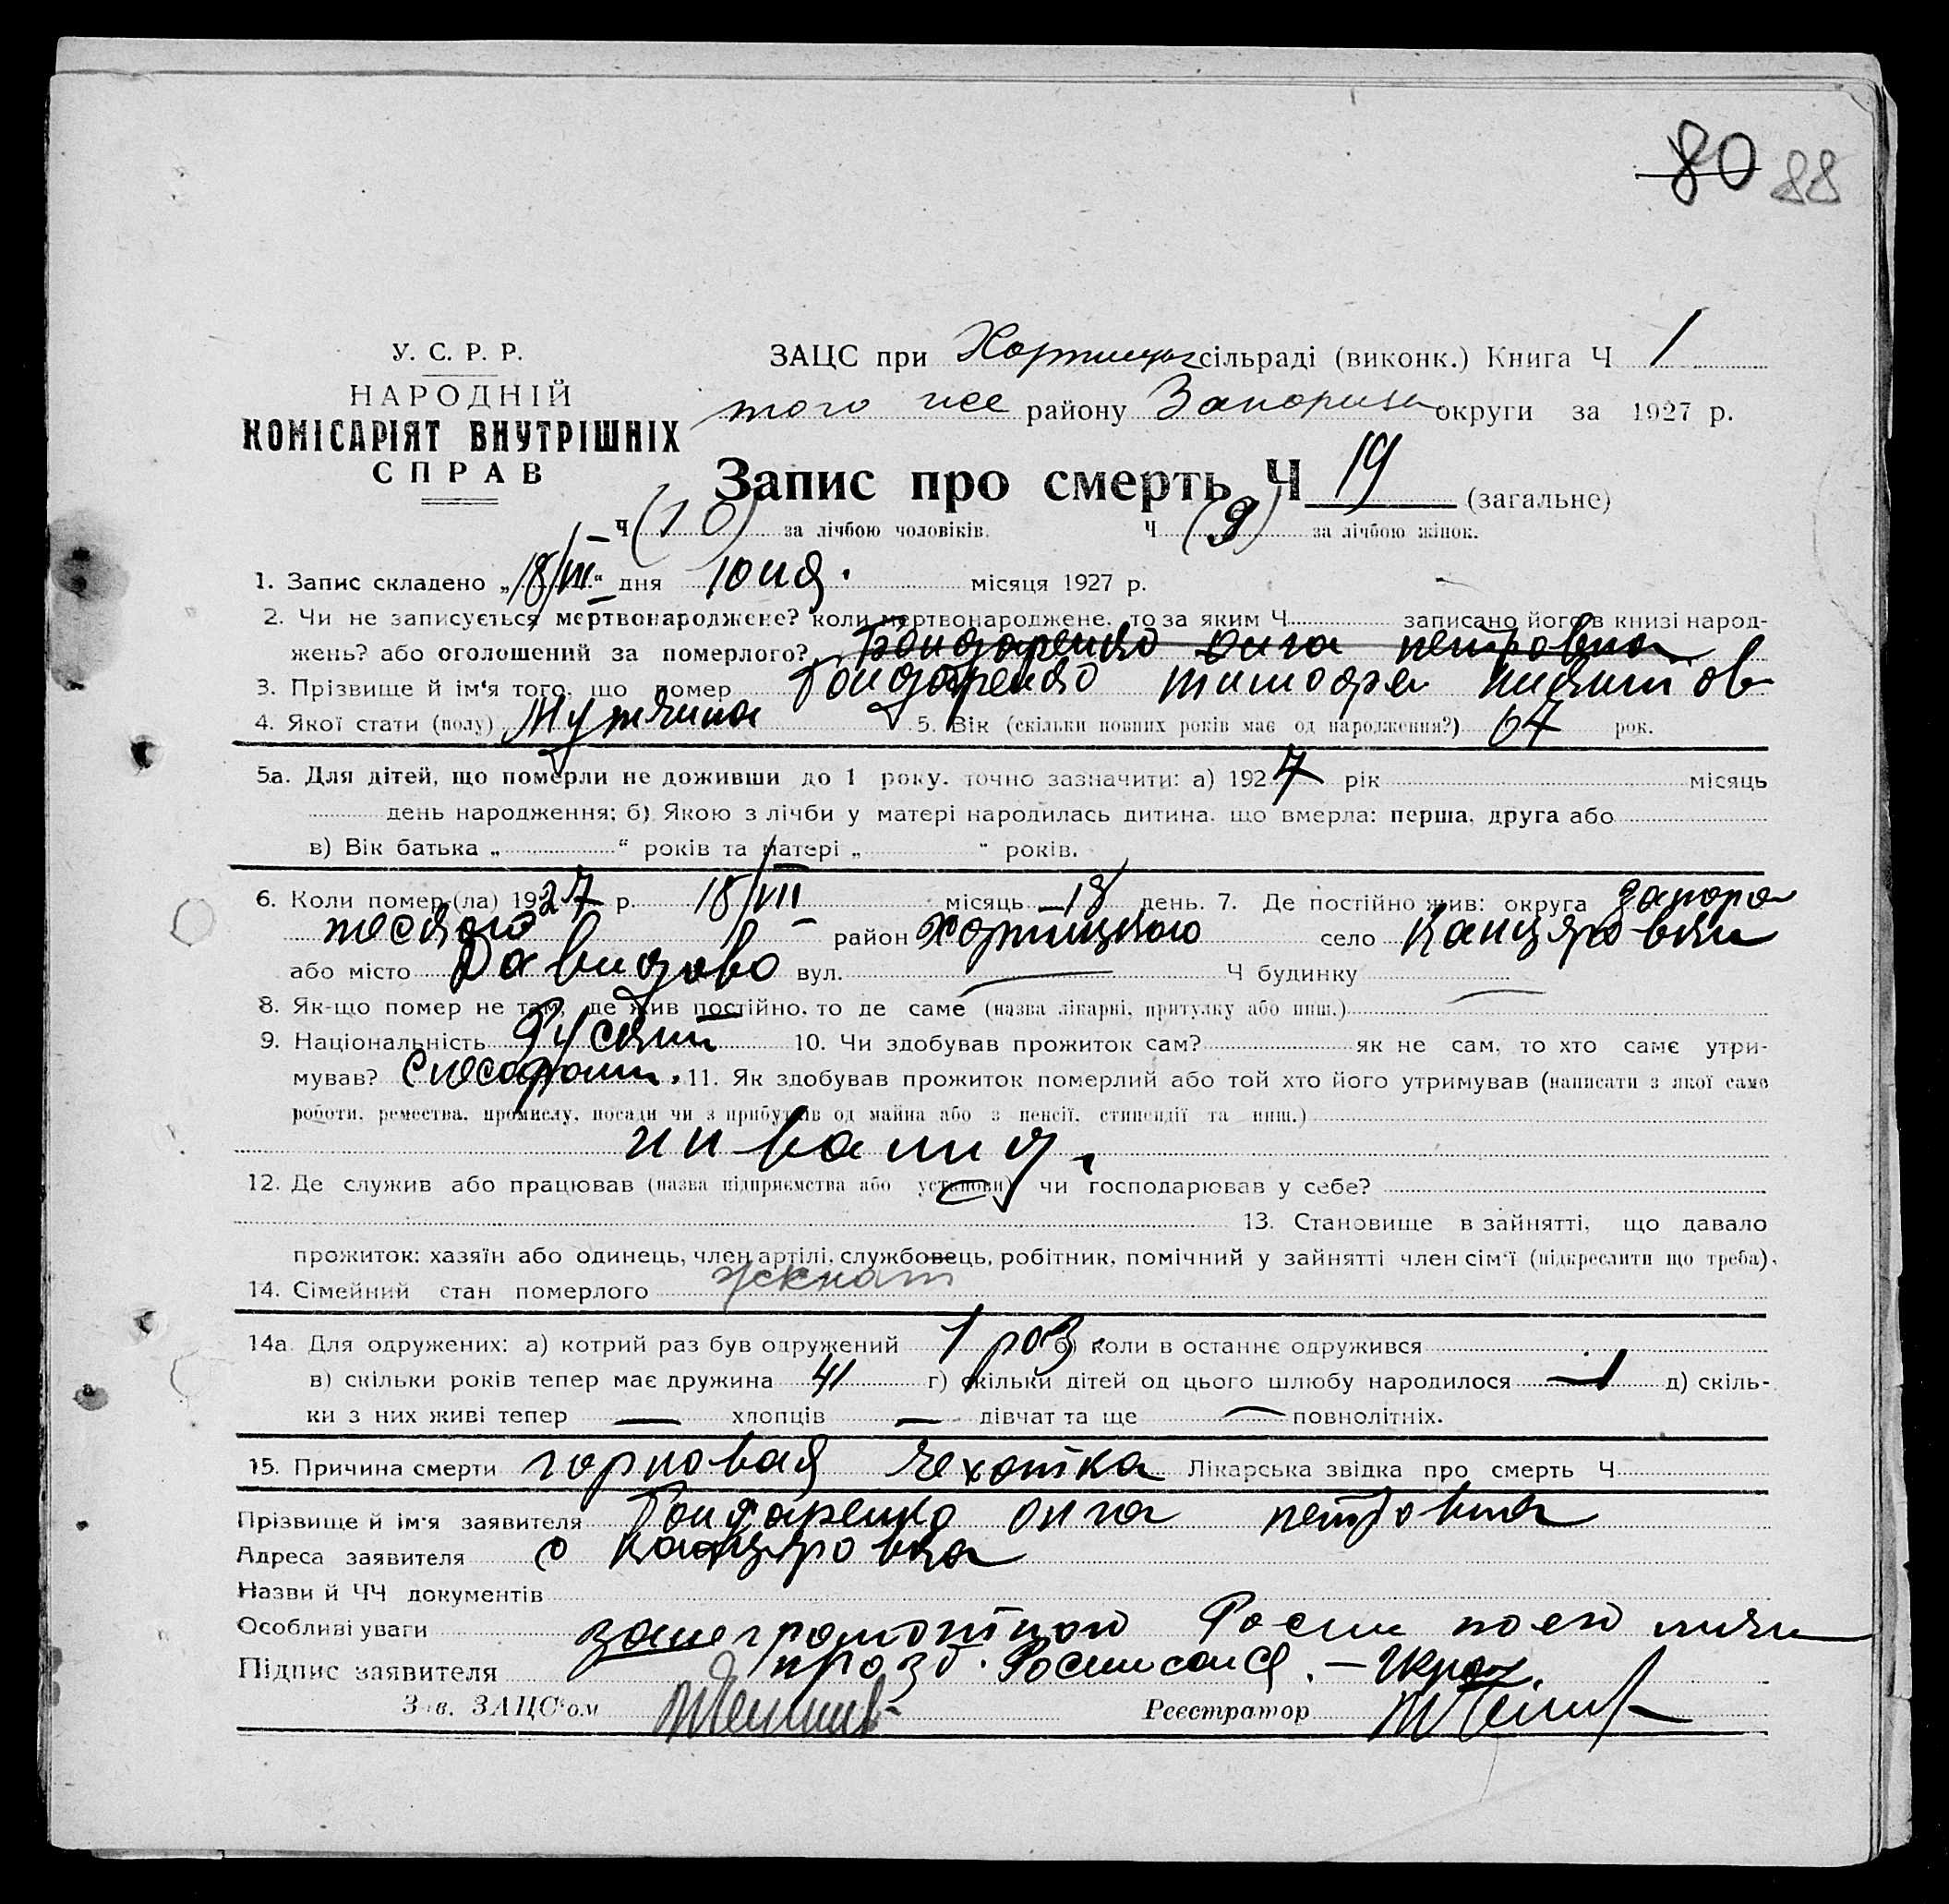 80 88
У. С. Р. Р.
НАРОДНІЙ
КОМІСАРІЯТ ВНУТРІШНІХ
СПРАВ
ЗАЦС при Хортицьк сільраді (виконк.) Книга Ч 1
того же району Запоризь округи за 1927 р.
Запис про смерть Ч 19 (загальне)
Ч (10) за лічбою чоловіків. Ч (9) за лічбою жінок.
1. Запис складено „18/VII“ дня юня. місяця 1927 р.
2. Чи не записується мертвонароджене? коли мертвонароджене, то за яким Ч записано його в книзі народ-
жень? або оголошений за померлого? Бондаренко Олга петровна
3. Прізвище й ім'я того, що помер Бондаренко тимофеи
4. Якої стати (полу) Мужчина 5. Вік (скільки повних років має од народження?) 67 рок.
5а. Для дітей, що померли не доживши до 1 року, точно зазначити: а) 1927 рік місяць
день народження; б) Якою з лічби у матері народилась дитина, що вмерла: перша, друга або
в) Вік батька „ “ років та матері „ “ років.
6. Коли помер (ла) 1927 р. 18/VII місяць 18 день. 7. Де постійно жив: округа Запоро
жского район Хортицкого село Канцировки
або місто Давидово вул. — Ч будинку —
8. Як-що помер не там, де жив постійно, то де саме (назва лікарні, притулку або инш.)
9. Національність Руский 10. Чи здобував прожиток сам? як не сам, то хто саме утри-
мував? Слесарем. 11. Як здобував прожиток померлий або той хто його утримував (написати з якої само
роботи, ремества, промислу, посади чи з прибутків од майна або з пенсії, стипендії та инш.)
инвалид.
12. Де служив або працював (назва підприємства або установи) чи господарював у себе?
13. Становище в зайнятті, що давало
прожиток: хазяїн або одинець, член артілі, службовець, робітник, помічний у зайнятті член сім'ї (підкреслити що треба).
14. Сімейний стан померлого женат
14а. Для одружених: а) котрий раз був одружений 1 раз б) коли в останнє одружився
в) скільки років тепер має дружина 41 г) скільки дітей од цього шлюбу народилося — 1 д) скіль-
ки з них живі тепер — хлопців — дівчат та ще — повнолітніх.
15. Причина смерти горловая чехотка Лікарська звідка про смерть Ч
Прізвище й ім'я заявителя Бондаренко олга петровна
Адреса заявителя с Канцировка
Назви й ЧЧ документів
Особливі уваги занеграмотною по ею личн
Підпис заявителя прозб. Росписался. —
Зав. ЗАЦС'ом Реєстратор